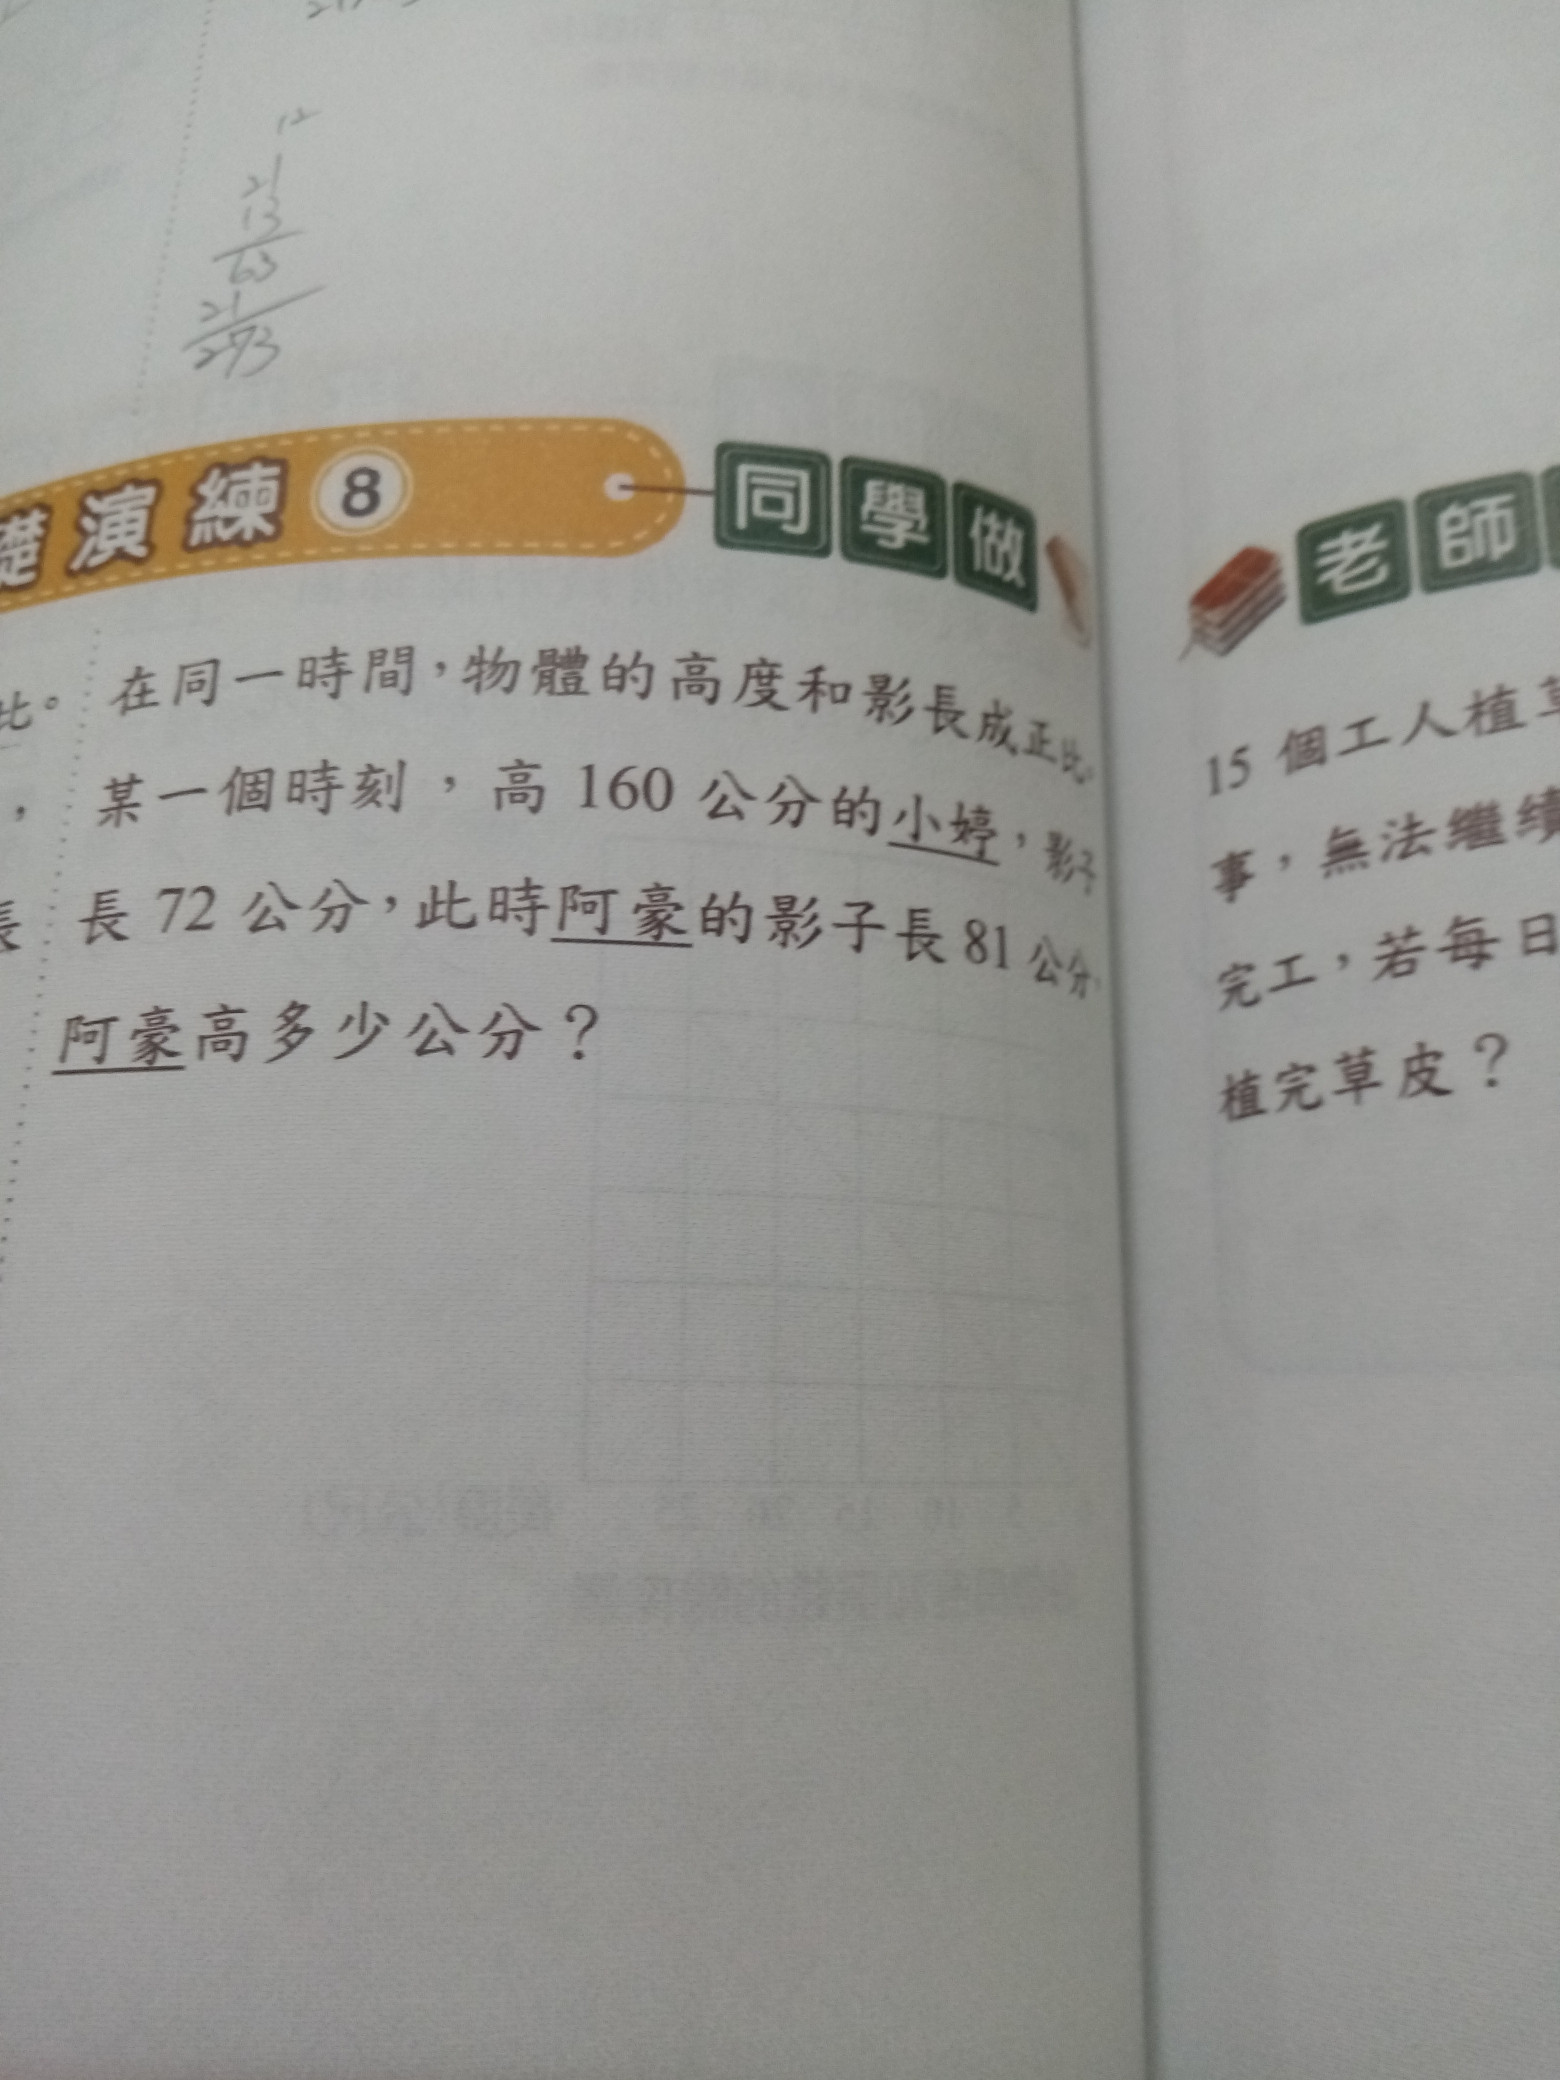 12
21
13
63
21
273
礎演練 8 同學做
比。
在同一時間,物體的高度和影長成正比。
, 某一個時刻,高 160 公分的小婷,影子
長 長 72 公分,此時阿豪的影子長 81 公分,
阿豪高多少公分?
老師
15 個工人植草
事,無法繼續
完工,若每日
植完草皮?